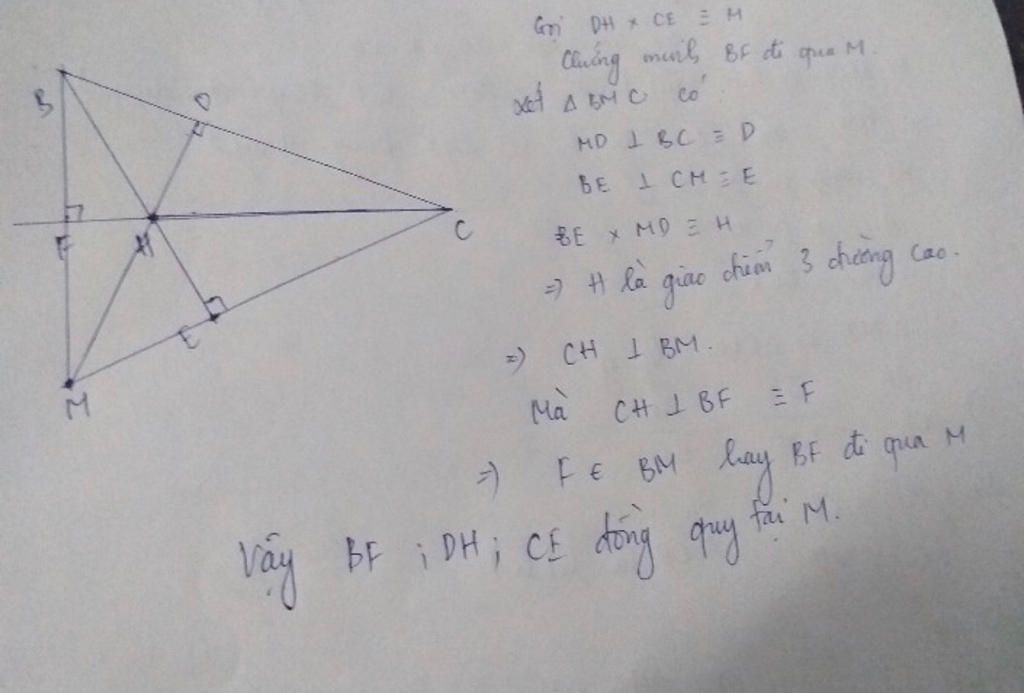 Gọi DH × CE ≡ M
Chứng minh BF đi qua M.
Xét Δ BMC có
MD ⊥ BC ≡ D
BE ⊥ CM ≡ E
BE × MD ≡ H
=> H là giao điểm 3 đường cao.
=> CH ⊥ BM.
Mà CH ⊥ BF ≡ F
=> F ∈ BM hay BF đi qua M
Vậy BF ; DH ; CE đồng quy tại M.
B
D
F
H
C
E
M